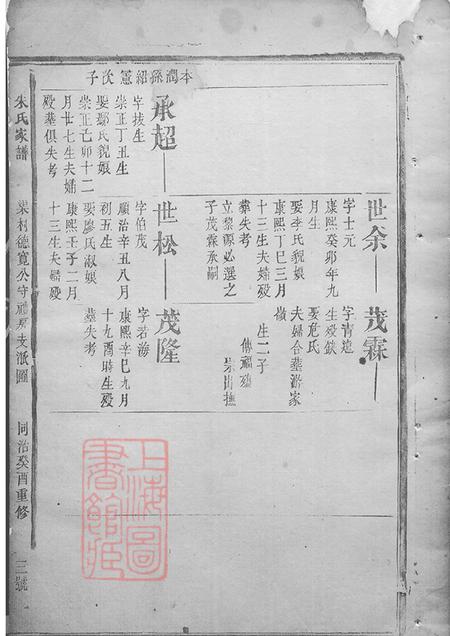 世余
字士元
康熙癸卯年九
月生
娶李氏貌娘
康熙丁巳三月
十三生夫婦殁
葬失考
立黎源必選之
子茂霖承嗣
茂霖
字青遠
生殁缺
娶危氏
夫婦合葬游家
生二子
傳福殤
崇出撫
本潤孫紹憲次子
承超
字拔生
崇正丁丑生
娶鄢氏貌娘
崇正己卯十二
月廿七生夫婦
殁葬俱失考
世松
字伯茂
順治辛丑八月
初五生
娶廖氏淑娘
康熙壬子二月
十三生夫婦殁
茂隆
字若海
康熙辛巳九月
十九酉時生殁
葬失考
朱氏家譜
德寬公守禮房支派圖
同治癸酉重修
三號
上海圖
書館藏